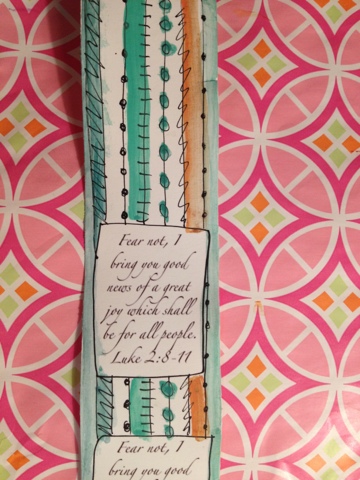 Fear not, I
bring you good
news of a great
joy which shall
be for all people.
Luke 2:8-11
Fear not, I
bring you good